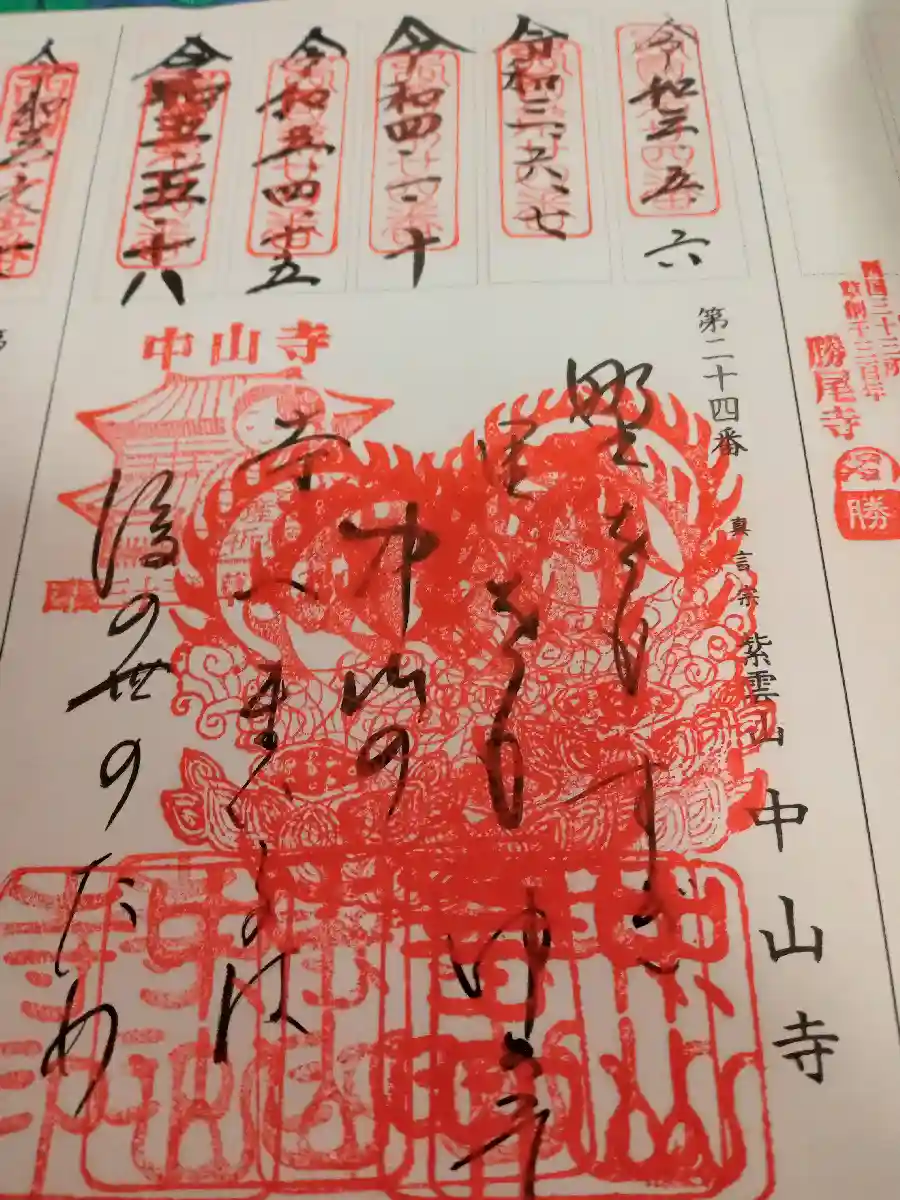 西国三十三所
草創千三百年
勝尾寺
勝
令和三、五、六
令和三、六、七
令和四
令和五、四、廿五
令和五、五
第二十四番 真言宗 紫雲山 中山寺
中山寺
野をもすぎ
里をもゆきて
中山の
寺へまいるは
後の世のため